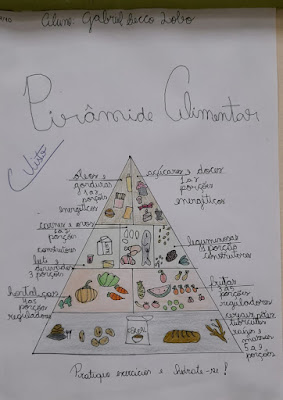 Aluno: Gabriel Becco Lobo
Pirâmide Alimentar
Visto
óleos e
gorduras
1 a 2
porções
energéticos
açúcares e doces
1 a 2
porções
energéticos
carnes e ovos
1 a 2
porções
construtores
leite e
derivados
3 porções
leguminosas
1 porção
construtores
hortaliças
4 a 5
porções
reguladores
frutas
3 a 5
porções
reguladores
arroz, pães
tubérculos
raízes e
massas
5 a 9
porções
Pratique exercícios e hidrate-se!